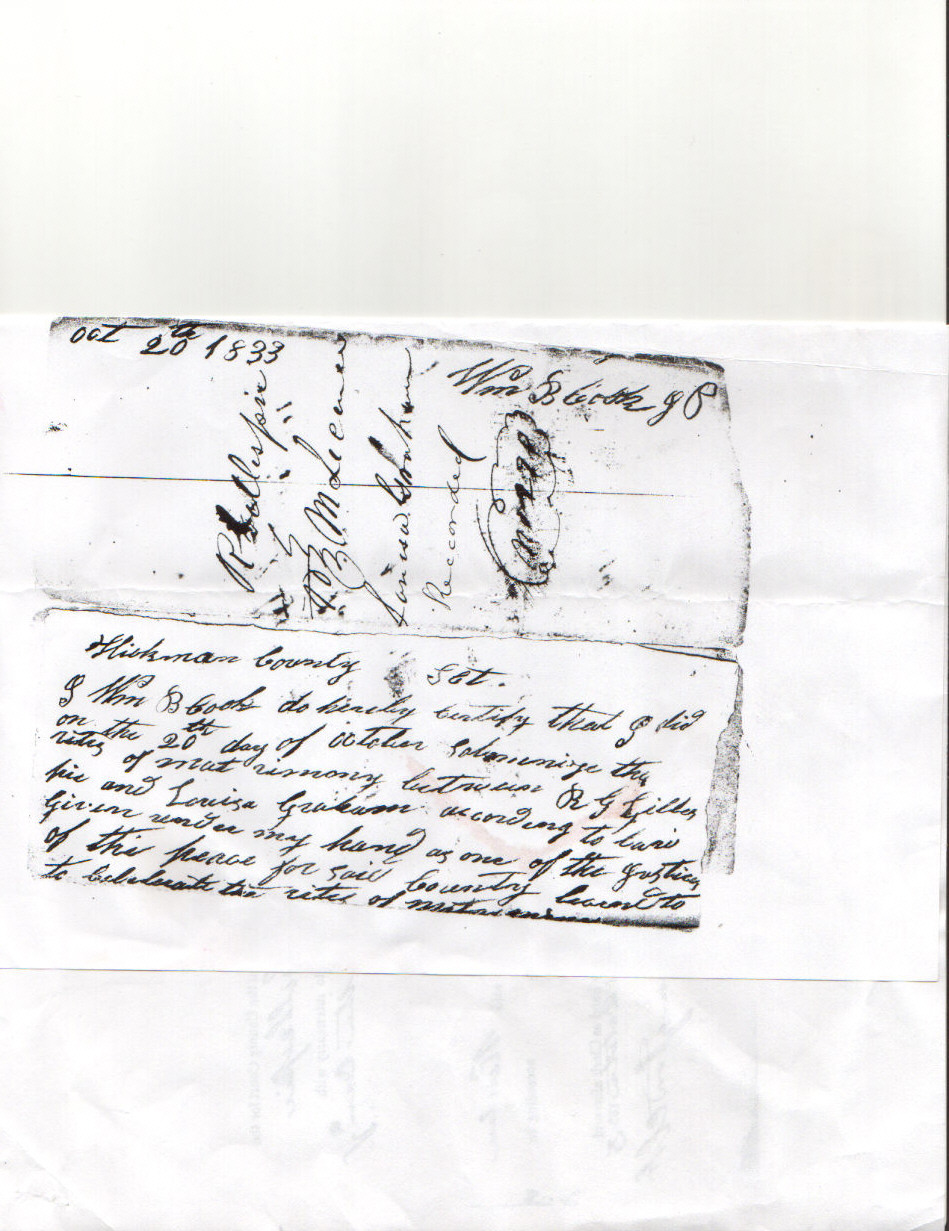 Oct 20th 1833
Wm B Cook J P
R Gallespie
To
Louisa Graham
Reccorded
Hickman County Sct.
I Wm B Cook do hereby certify that I did
on the 20th day of October Solemnize the
rites of mat rimony between R G Gilles
pie and Louisa Graham according to law
Given under my hand as one of the Justices
of the peace for said County
to Celebrate the rites of matrimony